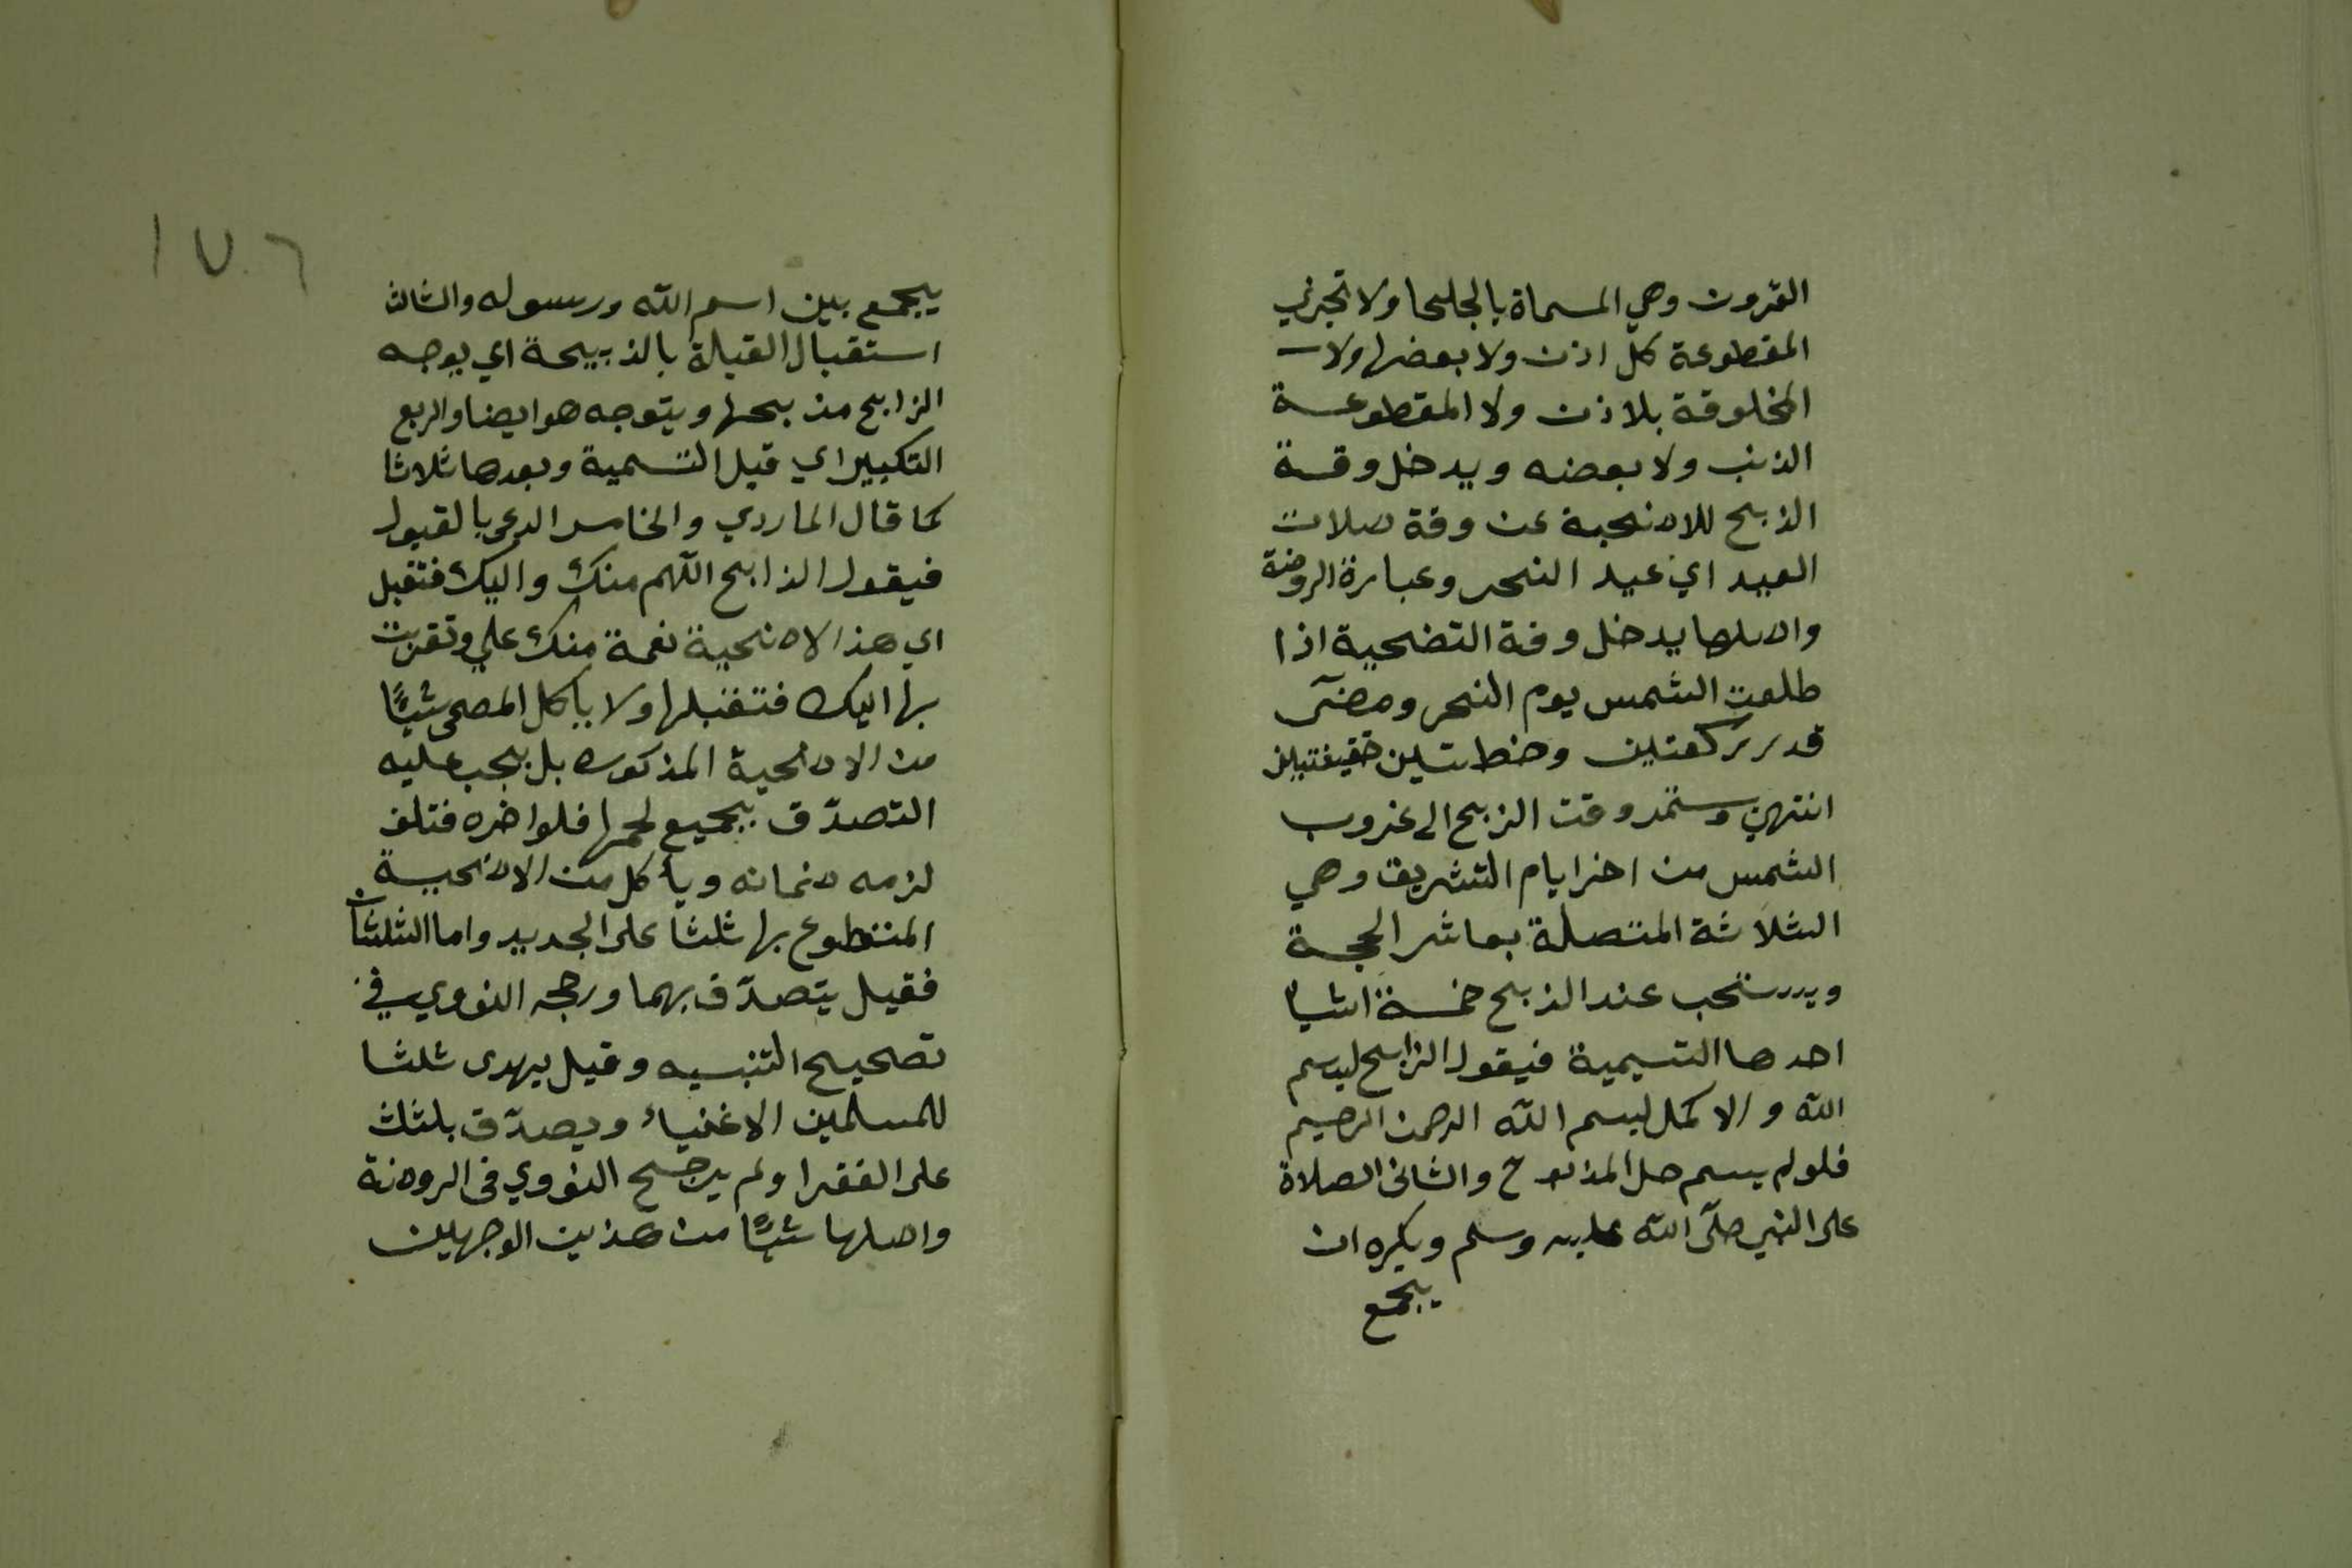 القرون وهي المسماة بالجلحا ولا تجزي
المقطوعة كل اذن ولا بعضها ولا
المخلوقة بلا ذن ولا المقطوعة
الذنب ولا بعضه ويدخل وقة
الذبح للاضحية عن وقة صلات
العيد اي عيد النحر وعبارة الروضة
واصلها يدخل وقة التضحية اذا
طلعت الشمس يوم النحر ومضى
قدر ركعتين وخطبتين خفيفتين
انتهى وستمر وقت الزبح الى غروب
الشمس من اخر ايام التشريق وهي
الثلاثة المتصلة بعاشر الحجة
ويستحب عند الذبح خمسة اشيا
احدها التسيمية فيقول الزابح لبسم
الله والاكمل لبسم الله الرحمن الرحيم
فلو لم يسم حل المذبوح والثاني الصلاة
على النبي صلى الله عليه وسلم ويكره ان
يجمع
١٧٦
يجمع بين اسم الله ورسوله والثالث
استقبال القبلة بالذبيحة اي يوجه
الزابح مذبحها ويتوجه هو ايضا والربع
التكبير اي قبل التسمية وبعدها ثلاثا
كما قال الماردي والخامس الدعى بالقبول
فيقول الذابح اللهم منك واليك فتقبل
اي هذا الاضحية نعمة منك علي وتقربت
بها اليك فتقبلها ولا يأكل المضحى شيئًا
من الاضحية المذكوره بل يجب عليه
التصدّق بجميع لحمها فلو اخره فتلف
لزمه ضمانه ويأكل من الاضحية
المتطوع بها ثلثا على الجديد واما الثلثان
فقيل يتصدّق بهما ورجحه النووي في
تصحيح التنبيه وقيل يهدى ثلثا
للمسلمين الاغنياء ويصدّق بلثث
على الفقرا ولم يرجح النووي في الروضة
واصلها شيئًا من هذين الوجهين